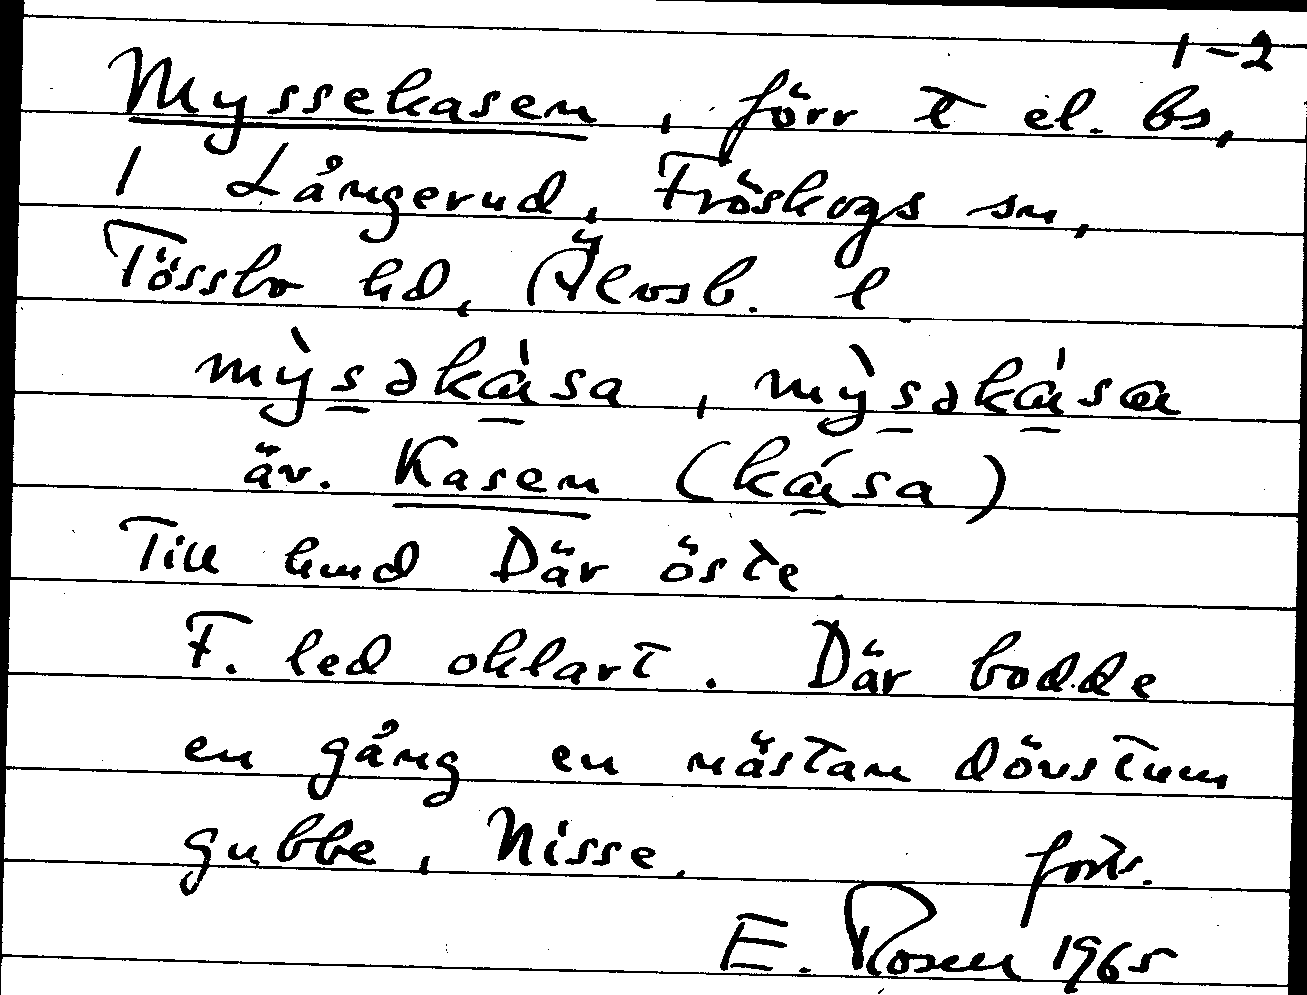 1-2
Myssekasen, förr t el. bs,
1 Långerud, Fröskogs sn,
Tössbo hd, Älvsb. l.
mỳsəkàsa, mỳsəkása
äv. Kasen (kása)
Till hmd Där öste.
F. led oklart. Där bodde
en gång en nästan dövstum
gubbe, Nisse. forts.
E. Rosen 1965